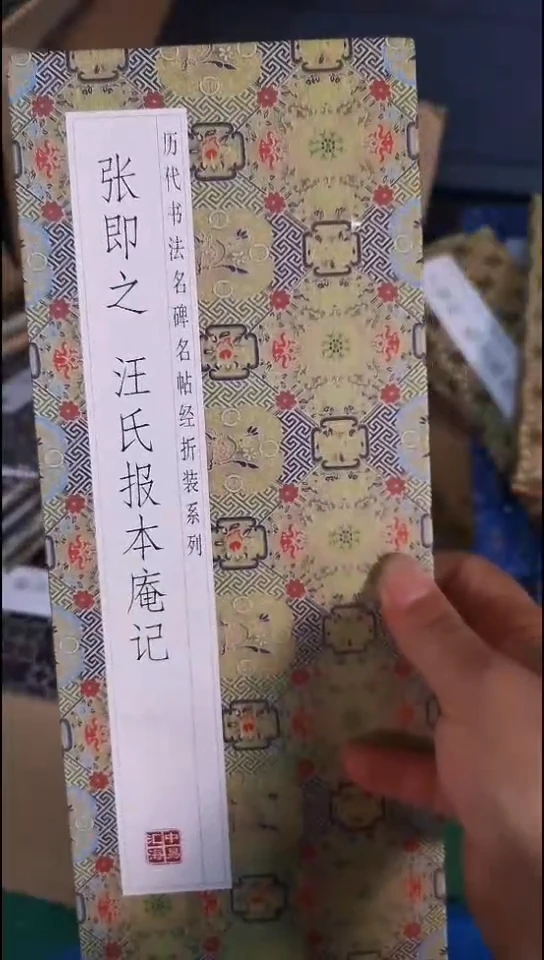 历代书法名碑名帖经折装系列
张即之 汪氏报本庵记